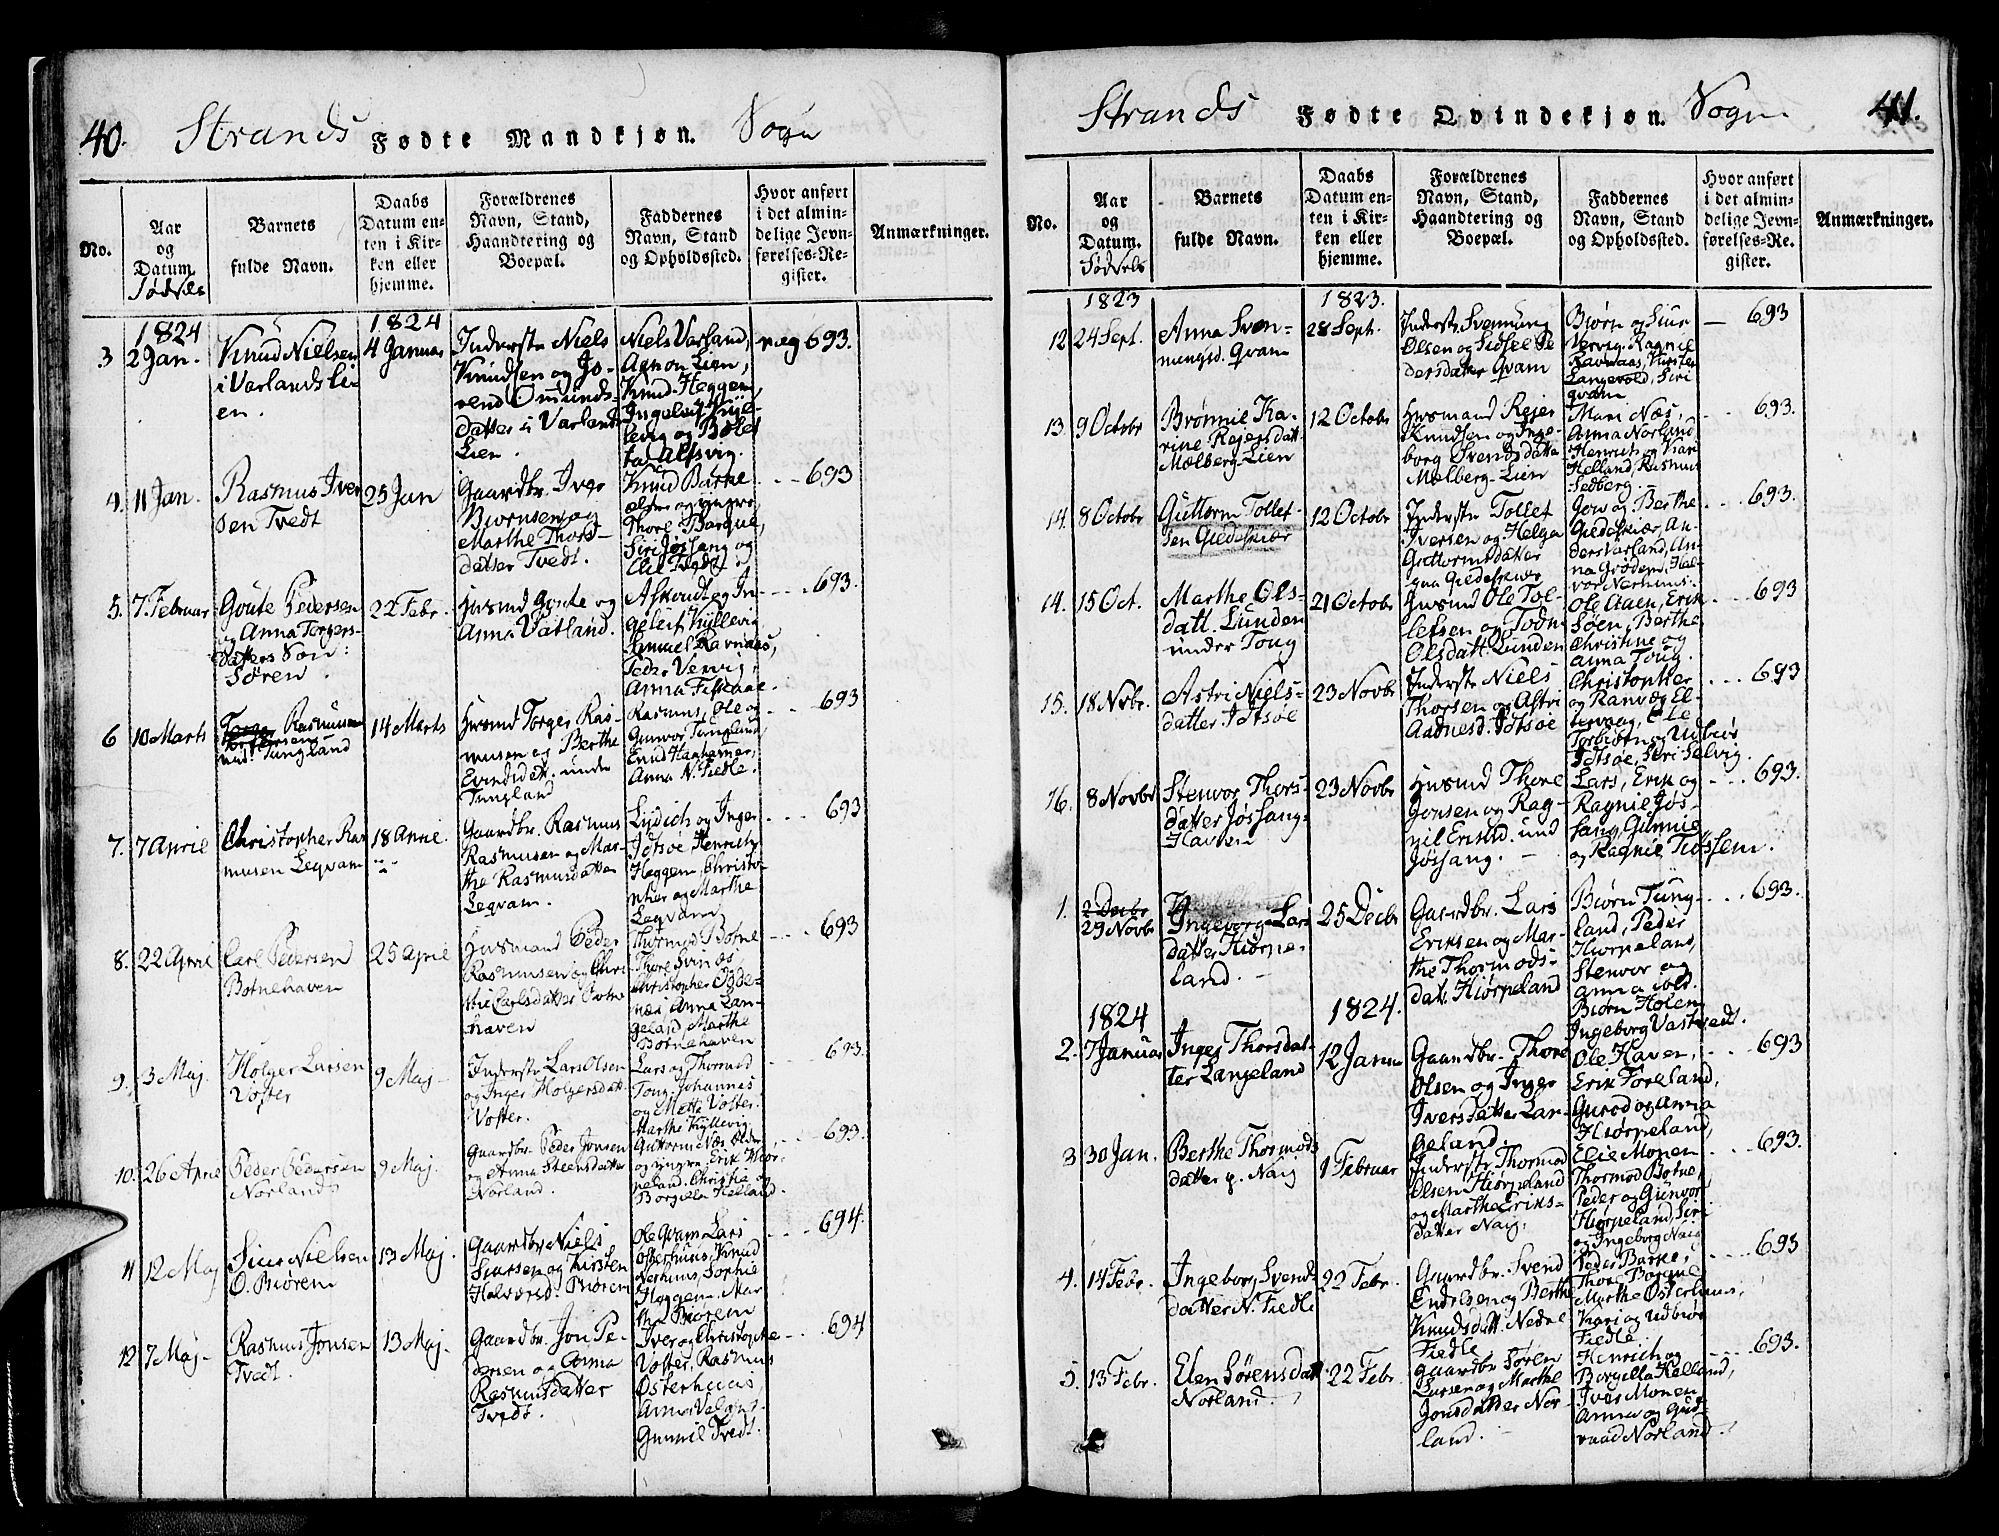 40. Strands Fødte Mandkjøn. Sogn
No.
Aar og Datum. Fødsels
Barnets fulde Navn.
Daabs Datum enten i Kirken eller hjemme.
Forældrenes Navn, Stand, Haandtering og Boepæl.
Faddernes Navn, Stand og Opholdssted.
Hvor anført i det almindelige Jevnførelses-Register.
Anmærkninger.
1824
1824
3
2 Jan.
Knud Nielsen
i Varlands Li-
en.
4 Januar
Inderste Niels
Knudsen og Jo-
rend Omunds-
datter i Varlands
Lien.
Niels Varland,
Lien,
Knud Heggem,
og
693.
4.
11 Jan.
Rasmus Iver
sen Tvedt
25 Jan
Gaardbr. Iver
Biørnsen og
Marthe Thors-
datter Tvedt.
Knud Barke
ældre og yngre,
Thore Barque,
Siri Jøssang og
Tvedt
693
5.
7. Februar
Goute Pedersen
og Anna Torgers-
datters Søn:
Søren.
22 Febr.
Husmd Goute og
Anna Vatland.
og In-
Kyllevig
Ravnaas,
Peder Vervig,
Anna Fiskaae.
693.
6
10 Marts
Rasmus
Tungland
14 Marts
Husmd Torger Ras-
musen og Berthe
Evindsdatt. under
Tungland
Rasmus, Ole og
Gunvor Tungland,
Anna N. Fiedle.
693
7.
7 April
Christopher Ras
musen Leqvam
18 April
Gaardbr. Rasmus
Rasmusen og Mar-
the Rasmusdatter
Leqvam.
Lydich og Inger
Idtsøe, Henrich
Heggem, Christo-
pher og Marthe
Leqvam
693
8.
22 April
Carl Pedersen
Botnehaven
25 April
Husmand Peder
Rasmusen og Chri
stie Carlsdatter Botne
haven
Thormod Botne
Thore
Christopher
Anna Lan-
geland, Marthe
Botnehaven
693
9.
3 Maj.
Holger Larsen
Voster
9 Maj
Inderste Lars Olsen
og Inger Holgersdatt.
Voster.
Lars og Thormod
Toug, Johannes
og Mette Voster.
Marthe Kyllevig
693.
10.
26 April
Peder Pedersen
Norlands
9 Maj.
Gaardbr. Peder Jonsen
og Anna Steensdatter
Norland.
Guttorm Næs ælder,
og yngre, Erik Hior-
peland, Christie og
Borgilla Helland.
693.
11
12 Maj
Siur Nielsen
O. Biørem
13 Maj.
Gaardbr. Niels
Siursen og Kirsten
Halvorsd. Biørem
Ole Qvam, Lars
Osterhuus, Knud
Nerhuus, Sophie
Heggem, Mar
the Biørem
694.
12
7 Maj
Rasmus Jonsen
Tvedt.
13 Maj
Gaardbr. Jon Pe-
dersen og Anna
Rasmusdatter
Tvedt.
Iver og Christophe
Voster, Rasmus
Østerhuus,
Anna
Gunnil Tvedt.
694
Strands Fødte Qvindekjøn. Sogn 41.
No.
Aar og Datum. Fødsels
Barnets fulde Navn.
Daabs Datum enten i Kirken eller hjemme.
Forældrenes Navn, Stand, Haandtering og Boepæl.
Faddernes Navn, Stand og Opholdssted.
Hvor anført i det almindelige Jevnførelses-Register.
Anmærkninger.
1823
1823.
12
24 Sept.
Anna Sven-
nungsd. Qvam
28 Sept.
Inderste Svennung
Olsen og Sidsel Pe
dersdatter Qvam
Biørn og Siur
Vervig, Ragnil
Ravnaas,
Langevold, Siri
Qvam
693
13.
9 Octobr
Brønnie Ka-
rine Rejersdatt.
Mælberg-Lien
12 Octobr
Husmand Rejer
Knudsen og Inge-
borg Svendsdatter
Mælberg-Lien
Mari Næs,
Anna Norland
Henrich og Kari
Helland, Rasmus
Sedberg.
693.
14.
8 Octobr
Guttorm Tollef-
sen Gildeskiær
12 Octobr
Inderste Tollef
Iversen og Helga
Guttormsdatter
paa Gildeskiær
Jon og Berthe
Gildeskiær, An-
ders Varland, An-
na Grødem, Hal-
vor Nerhuus.
693.
14.
15 Oct.
Marthe Ols-
datt. Lunden
under Toug
21 Octobr
Husmd Ole Tol-
lefsen og
Olsdatt Lunden
Ole Aaen, Erik
Søen, Berthe
Christine og
Anna Toug.
693
15.
18 Nvbr.
Astri Niels-
datter Idtsøe
23 Novbr
Inderste Niels
Thorsen og Astri
Aadnesd. Idtsøe
Christopher
og Ranvøg El-
tervaag, Ole
Torbiørn og Udbiør
Idtsøe, Siri Selvig.
693
16.
8 Novbr
Stenvor Thors-
datter Jøssang-
Haven
23 Novbr
Husmd Thore
Jonsen og Rag-
nil Eriksd. und
Jøssang.
Lars, Erik og
Ragnie Jøs-
sang, Gunnie
og Ragnie Tiøssem.
693.
1.
2 Decbr
29 Novbr
Ingeborg Lars
datter Hiørpe-
land.
25 Decbr
Gaardbr. Lars
Eriksen og Mar-
the Thormods-
datt. Hiørpeland
Biørn Tung-
land, Peder
Hiørpeland,
Stenvor og
Anna ibid.
Biørn Holem
Ingeborg Vastvedt.
693.
1824
1824.
2.
7 Januar
Inger Thorsdat-
ter Langeland
12 Janu
Gaardbr. Thore
Olsen og Inger
Iversdatter Lan-
geland.
Ole Haven,
Erik Foreland,
Guroe og Anna
Hiørpeland,
693
3
30 Jan.
Berthe Thormods
datter p. Naig
1 Februar
Inderste Thormod
Olsen Hiørpeland
og Marthe Eriks-
datter Naig.
Elie Monen
Thormod Botne,
Peder og Gunvor
Hiørpeland, Siri
og Ingeborg Naig
693.
4.
14 Febr.
Ingeborg Svends
datter N. Fiedle
22 Febr.
Gaardbr. Svend
Endresen og Berthe
Knudsdatt. Nedre
Fiedle
Peder Barke,
Thore Barque
Marthe Osterhuus,
Kari og Udbiør
Fiedle
693
5.
13 Febr.
Elen Sørensdatt
Norland.
22 Febr.
Gaardbr Søren
Larsen og Marthe
Jonsdatter Nor-
land.
Henrich og
Borgilla Helland,
Iver Monen
Anna og Gud-
Norland.
693.